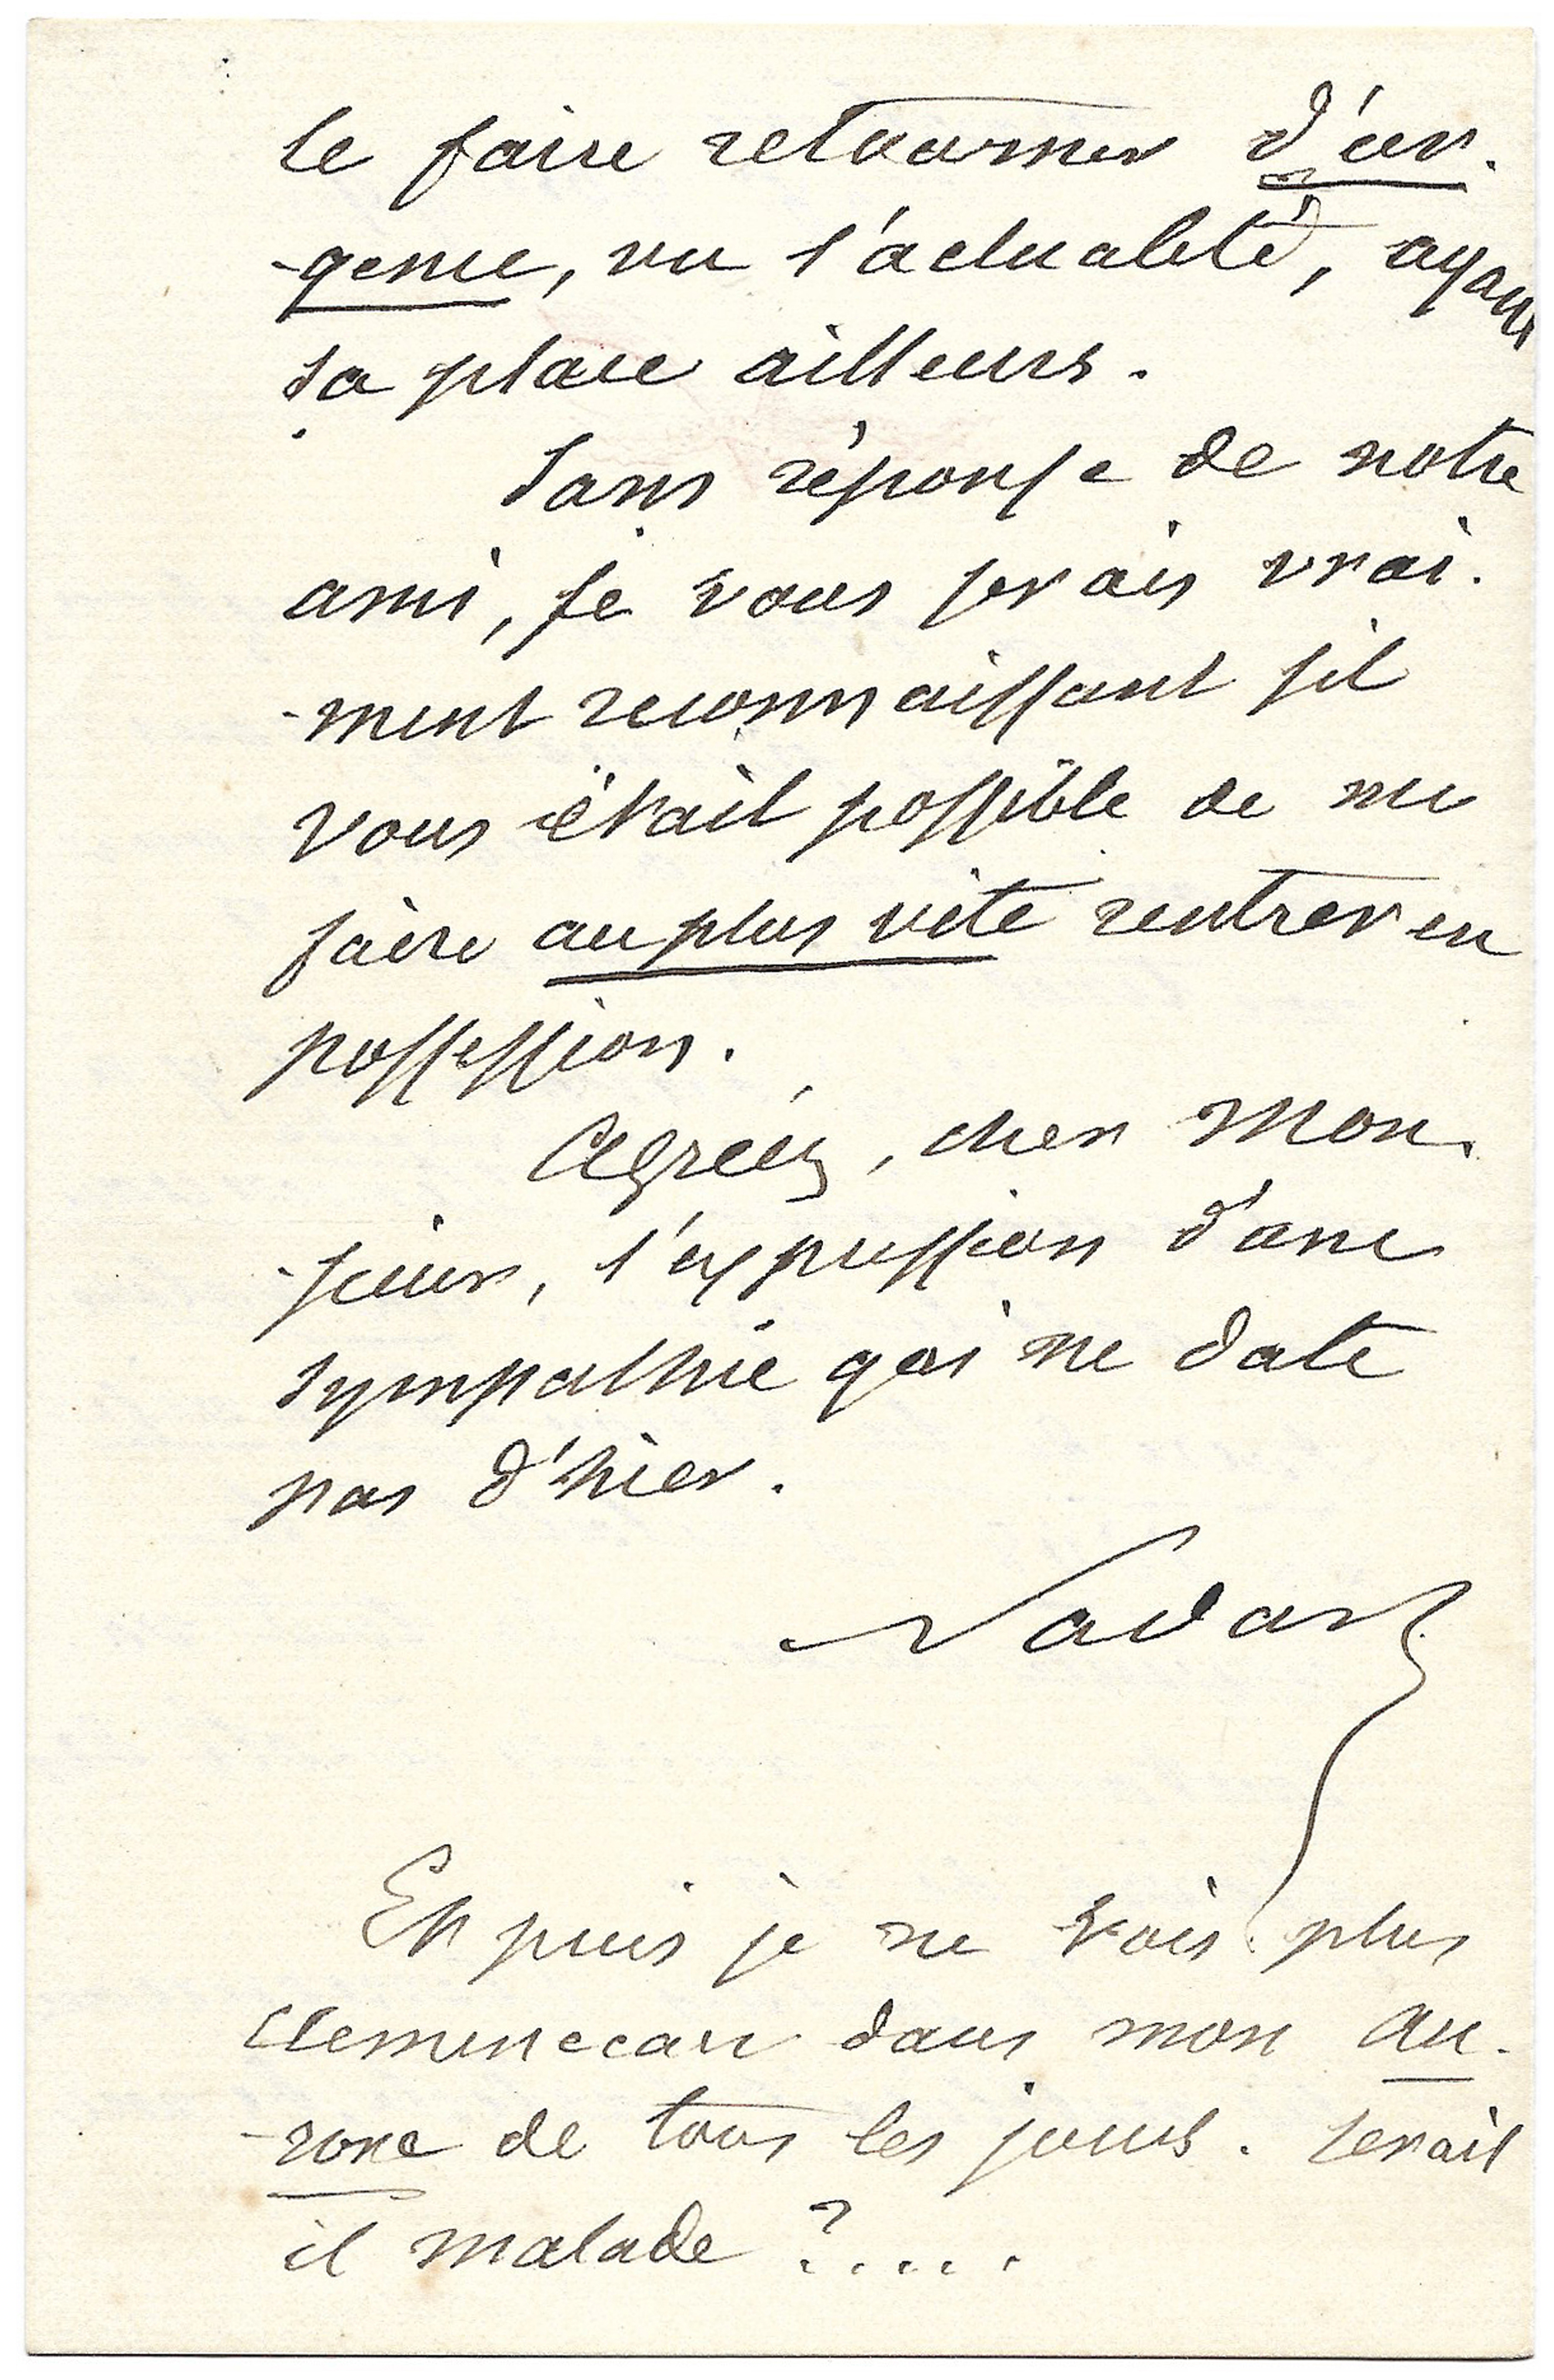 le faire retourner d'ur-
-gence, vu l'actualité, ayant
sa place ailleurs.
Sans réponse de notre
ami, je vous serais vrai-
-ment reconnaissant s'il
vous était possible de me
faire au plus vite rentrer en
possession.
Agréez, cher Mon-
-sieur, l'expression d'une
sympathie qui ne date
pas d'hier.
Nadar
Et puis je ne vois plus
Clemenceau dans mon Au-
-rore de tous les jours. Serait
il malade ?....